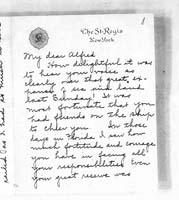 1
The St. Regis
New York
My dear Alfred
How delightful it was
to hear your voice as
clearly over that great ex-
panse of sea and land
last Sunday! It was
most fortunate that you
had friends on the ship
to cheer you. In those
days in Florida I saw how
much fortitude and courage
you have in facing all
your responsibilities. Even
your great reserve was